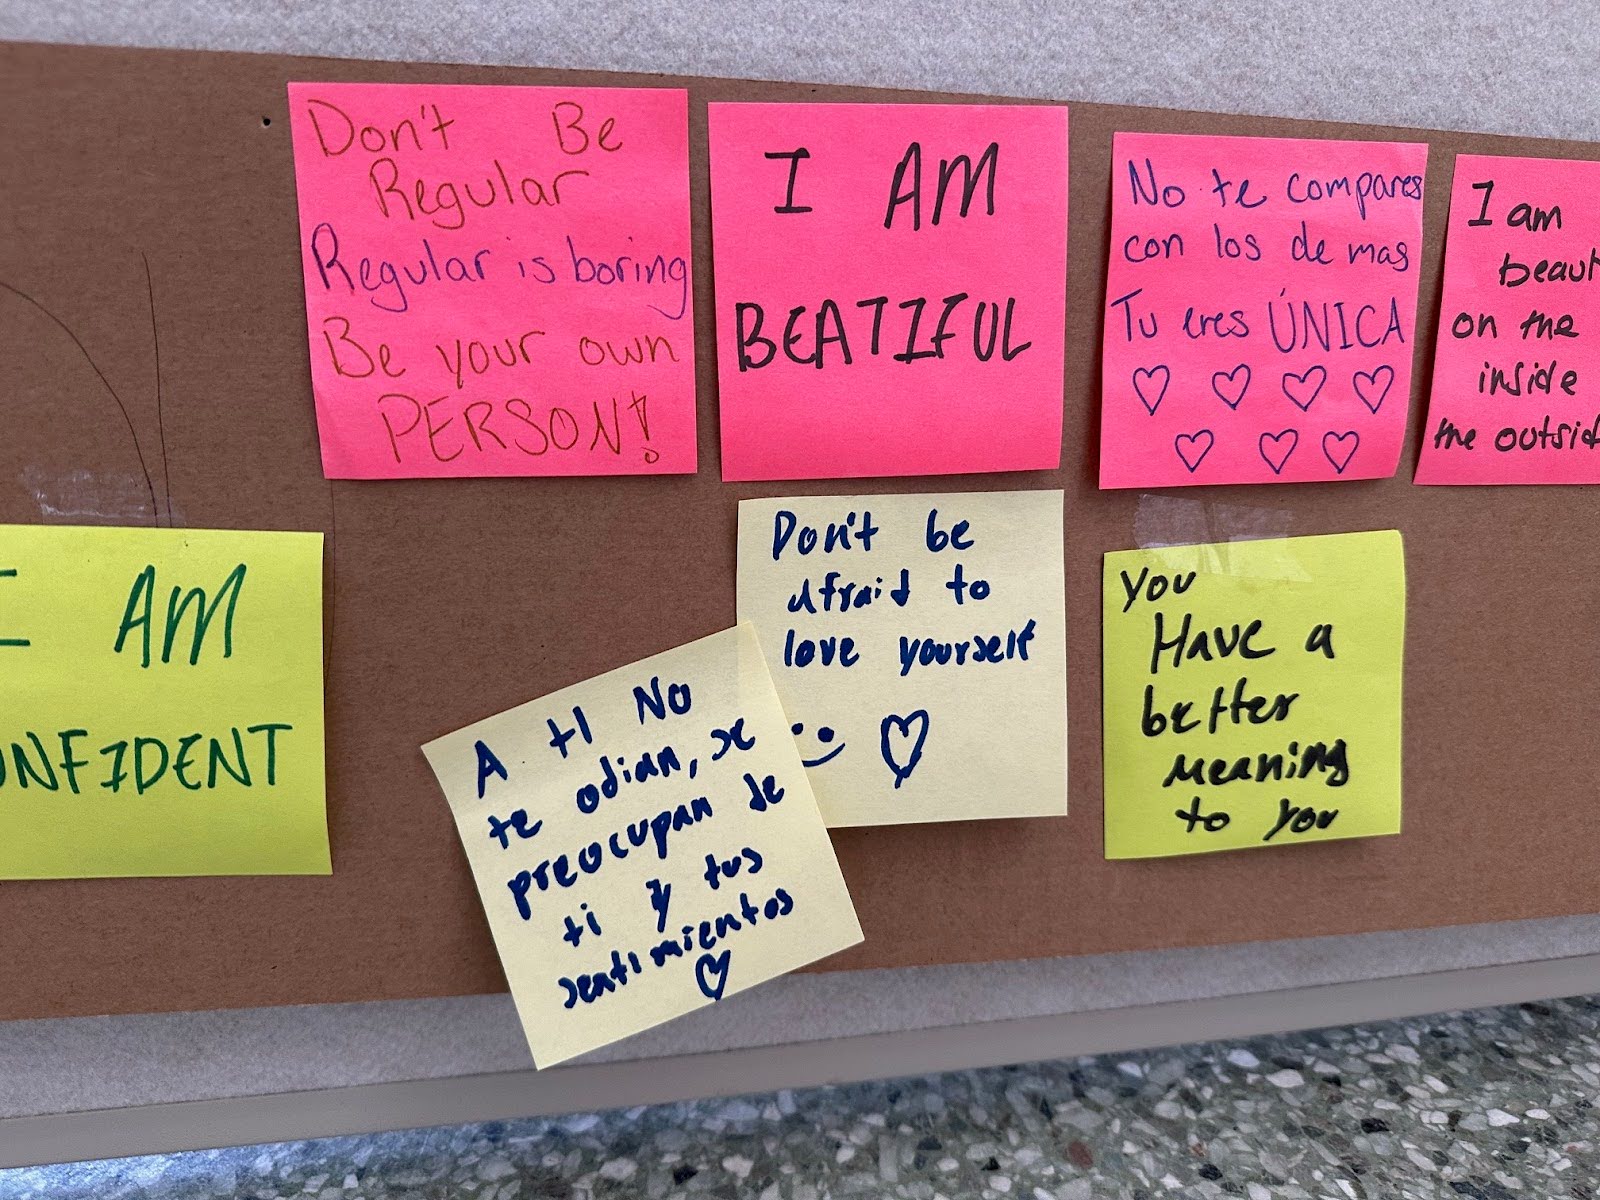 Don't Be
Regular
Regular is boring
Be your own
PERSON!
I AM
BEATIFUL
No te compares
con los de mas
Tu eres ÚNICA
I am
beaut
on the
inside
the outsid
I AM
ONFIDENT
A tI No
te odian, se
preocupan de
ti y tus
sentimientos
Don't be
afraid to
love yourself
You
Have a
better
meaning
to you